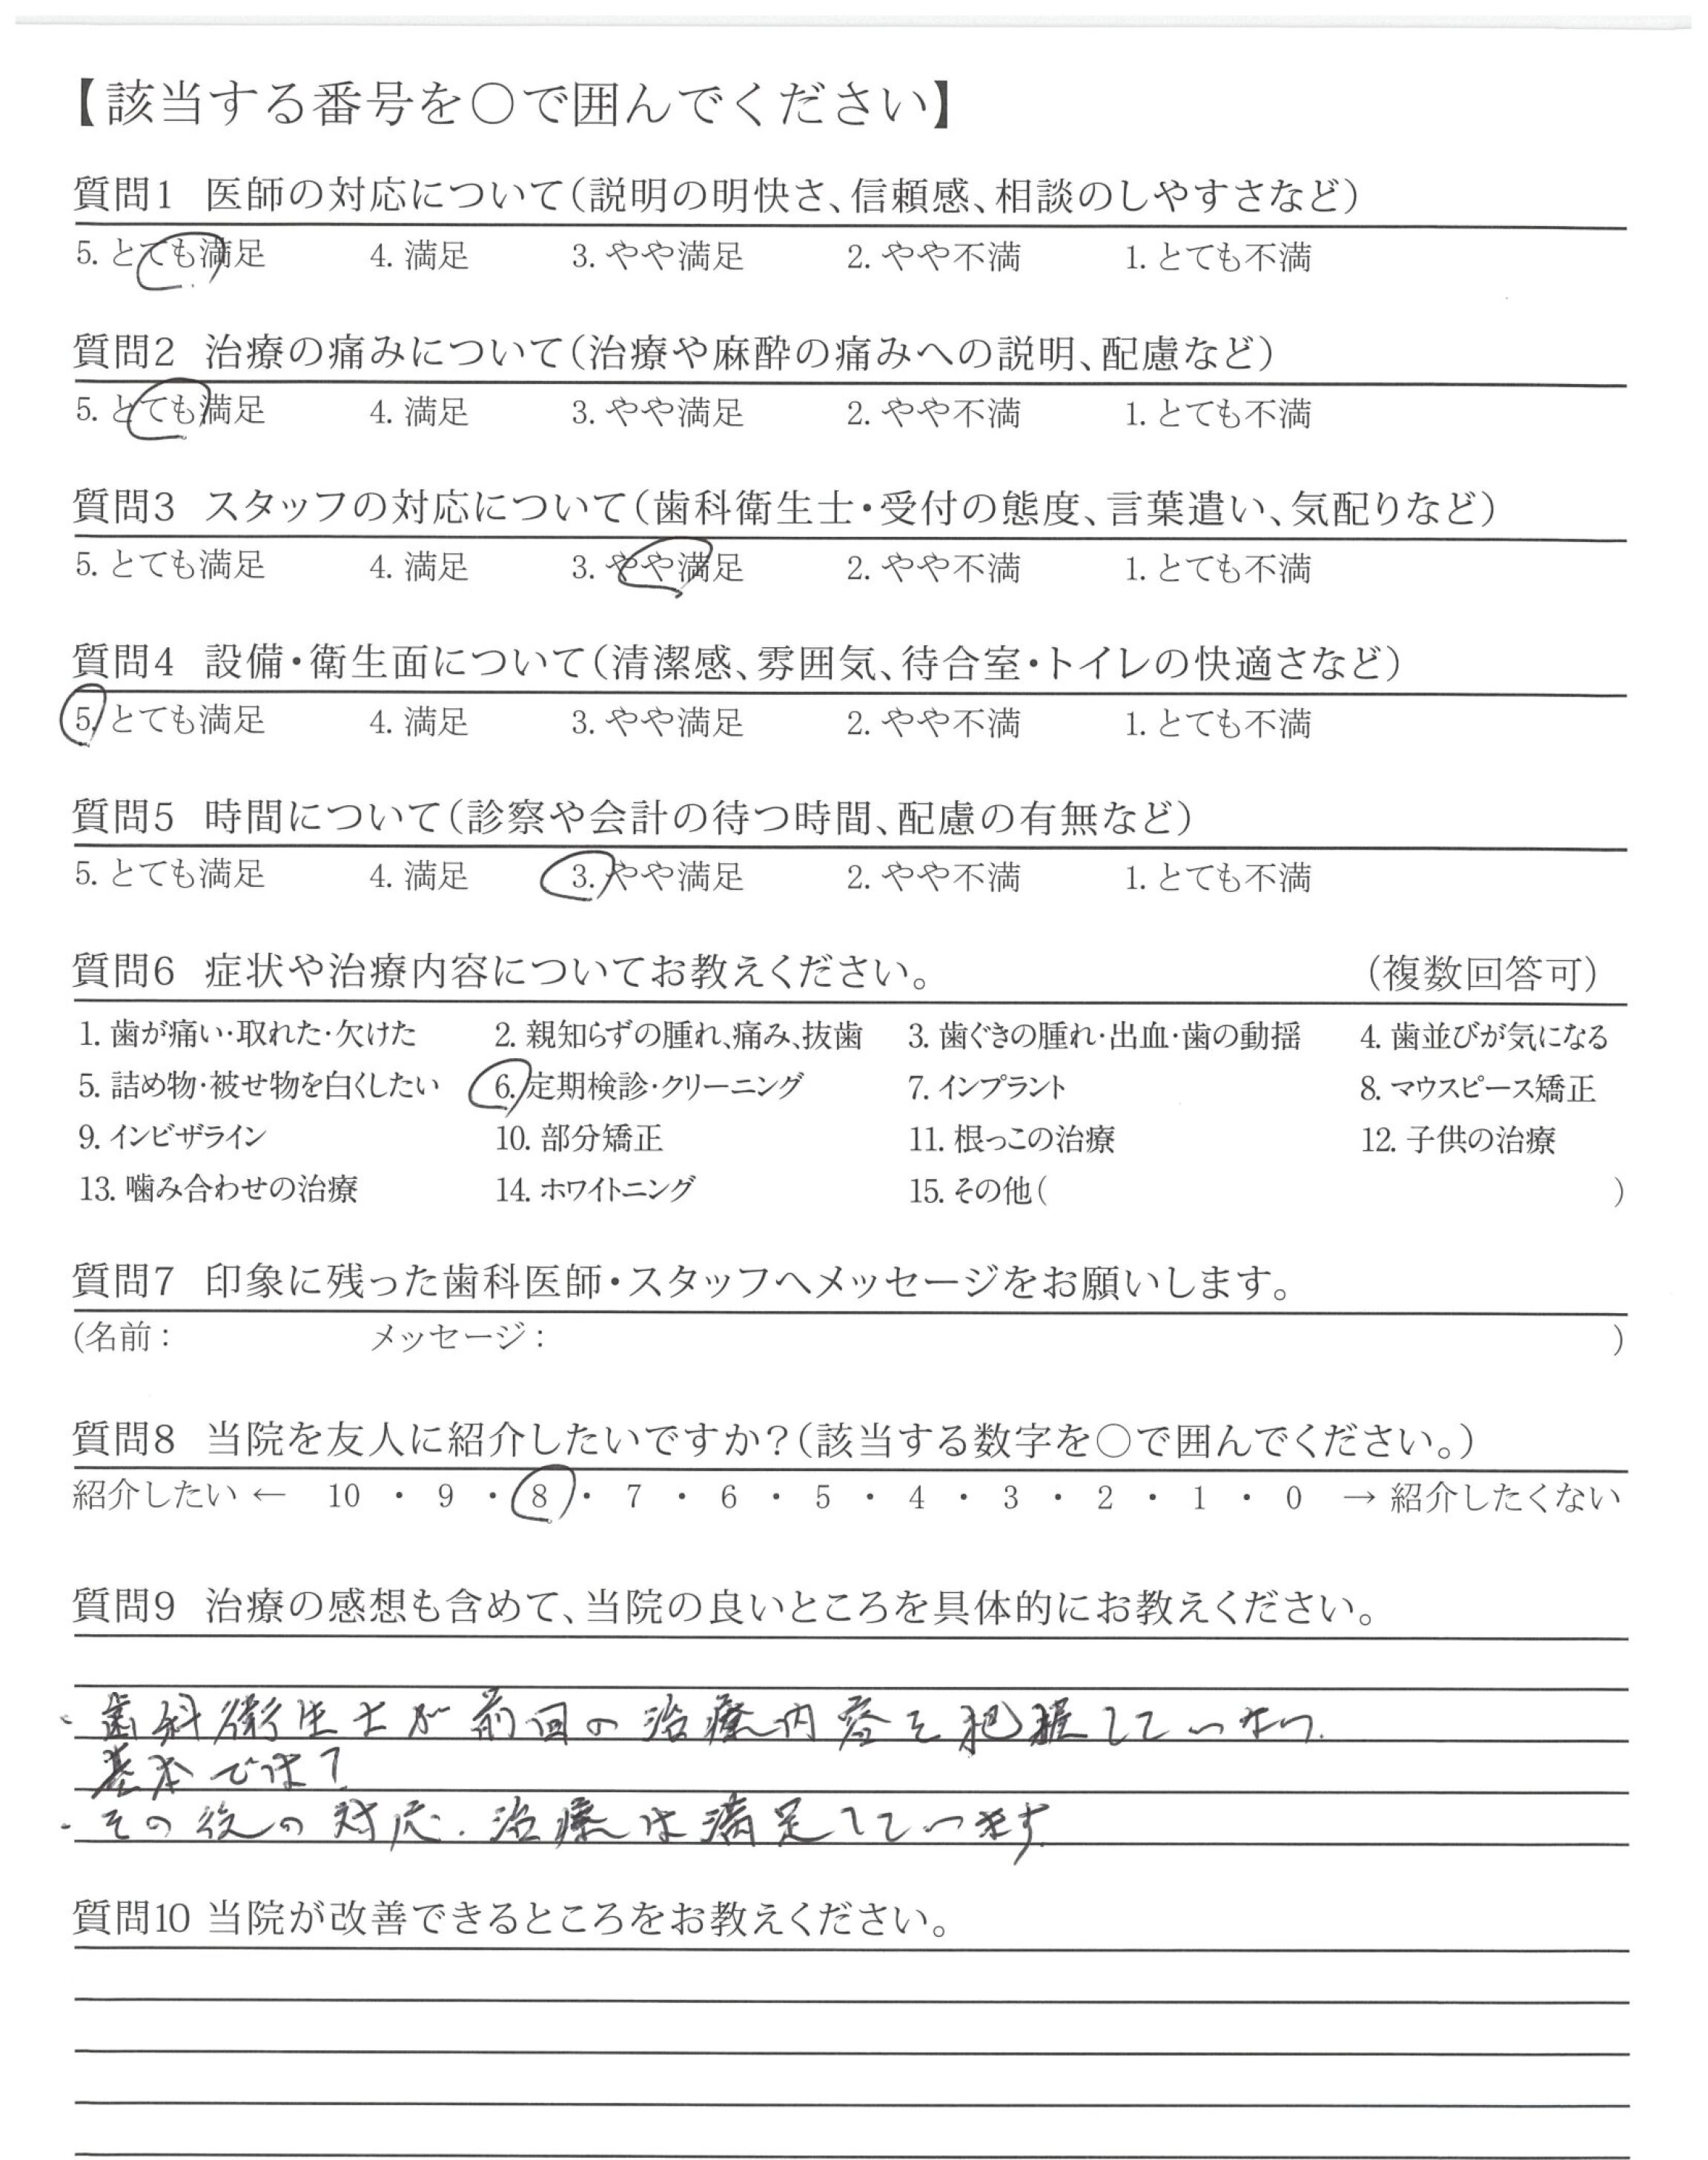 【該当する番号を○で囲んでください】
質問1 医師の対応について(説明の明快さ、信頼感、相談のしやすさなど)
5. とても満足 4. 満足 3. やや満足 2. やや不満 1. とても不満
質問2 治療の痛みについて(治療や麻酔の痛みへの説明、配慮など)
5. とても満足 4. 満足 3. やや満足 2. やや不満 1. とても不満
質問3 スタッフの対応について(歯科衛生士・受付の態度、言葉遣い、気配りなど)
5. とても満足 4. 満足 3. やや満足 2. やや不満 1. とても不満
質問4 設備・衛生面について(清潔感、雰囲気、待合室・トイレの快適さなど)
5. とても満足 4. 満足 3. やや満足 2. やや不満 1. とても不満
質問5 時間について(診察や会計の待つ時間、配慮の有無など)
5. とても満足 4. 満足 3. やや満足 2. やや不満 1. とても不満
質問6 症状や治療内容についてお教えください。 (複数回答可)
1. 歯が痛い・取れた・欠けた 2. 親知らずの腫れ、痛み、抜歯 3. 歯ぐきの腫れ・出血・歯の動揺 4. 歯並びが気になる
5. 詰め物・被せ物を白くしたい 6. 定期検診・クリーニング 7. インプラント 8. マウスピース矯正
9. インビザライン 10. 部分矯正 11. 根っこの治療 12. 子供の治療
13. 噛み合わせの治療 14. ホワイトニング 15. その他( )
質問7 印象に残った歯科医師・スタッフへメッセージをお願いします。
(名前: メッセージ: )
質問8 当院を友人に紹介したいですか?(該当する数字を○で囲んでください。)
紹介したい ← 10 ・ 9 ・ 8 ・ 7 ・ 6 ・ 5 ・ 4 ・ 3 ・ 2 ・ 1 ・ 0 → 紹介したくない
質問9 治療の感想も含めて、当院の良いところを具体的にお教えください。
・歯科衛生士が前回の治療内容を把握して
基本では?
・その後の対応.治療は満足しています
質問10 当院が改善できるところをお教えください。